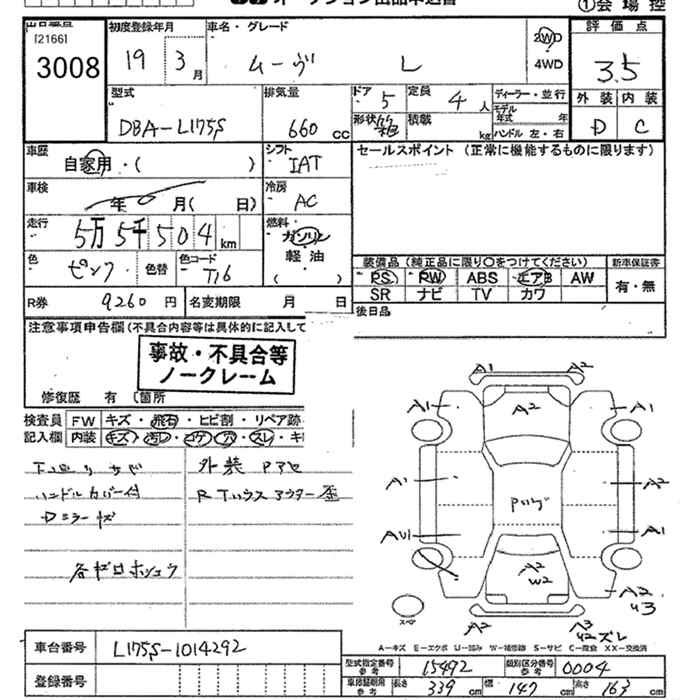 ①会場控
出品番号
[2166]
3008
初度登録年月
19 3月
車名・グレード
ムーヴ L
2WD
4WD
評価点
3.5
外装 内装
D C
型式
DBA-L175S
排気量
660 cc
ドア 5
定員 4人
形状
積載 kg
ディーラー・並行
モデル年式 年
ハンドル 左・右
車歴
自家用・( )
シフト
IAT
セールスポイント (正常に機能するものに限ります)
車検
年 月( 日)
冷房
AC
走行
5万5千504km
燃料
ガソリン
軽油
( )
色
ピンク
色替
色コード
T16
装備品 (純正品に限り○をつけてください)
PS PW ABS エアB AW
SR ナビ TV カワ
新車保証書
有・無
R券 9260円
名変期限 月 日
後日品
注意事項申告欄 (不具合内容等は具体的に記入して
事故・不具合等
ノークレーム
修復歴 有 (箇所
検査員
記入欄
FW キズ・飛石・ヒビ割・リペア跡
内装 キズ・汚レ・コゲ・穴・スレ・キ
下廻りサビ
ハンドルカバー付
Dミラーキズ
各ゼロホシュウ
外装 Pアセ
R Tハウスアウター歪
A1 A2
A1 A2 A1
A1 Pいげ A2
AU1 A1
A2
W2
A2
U3
スペア
A2
A3
U2ズレ
A-キズ E-エクボ U-凹み W-補修跡 S-サビ C-腐食 XX-交換済
車台番号 L175S-1014292
登録番号
型式指定番号
参考
15492
類別区分番号
参考
0004
車検証期用
参考
長さ 339cm
幅 147cm
高さ 163cm